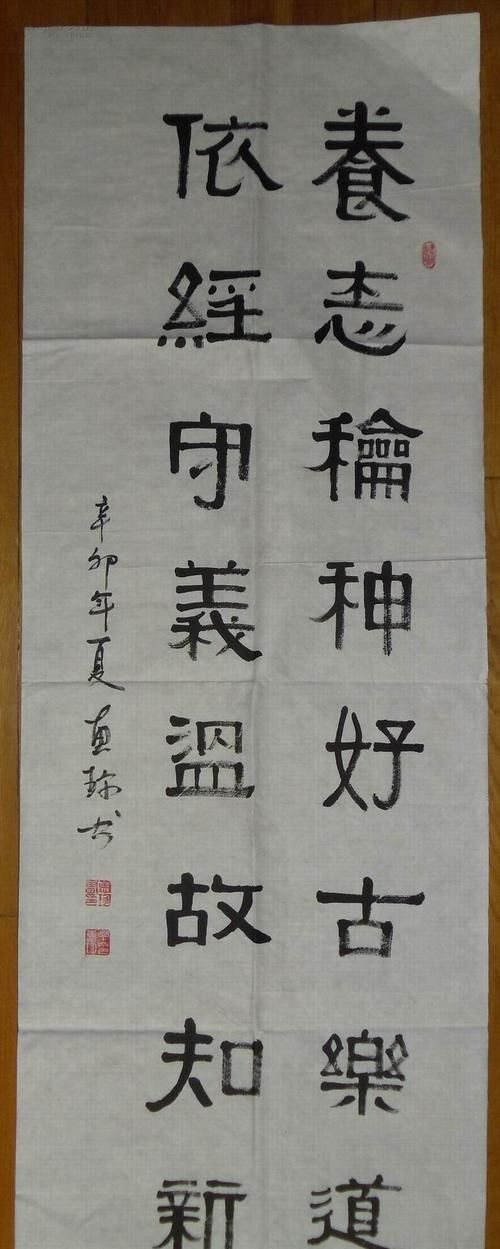 養志和神好古樂道
依經守義溫故知新
辛卯年夏惠珍书